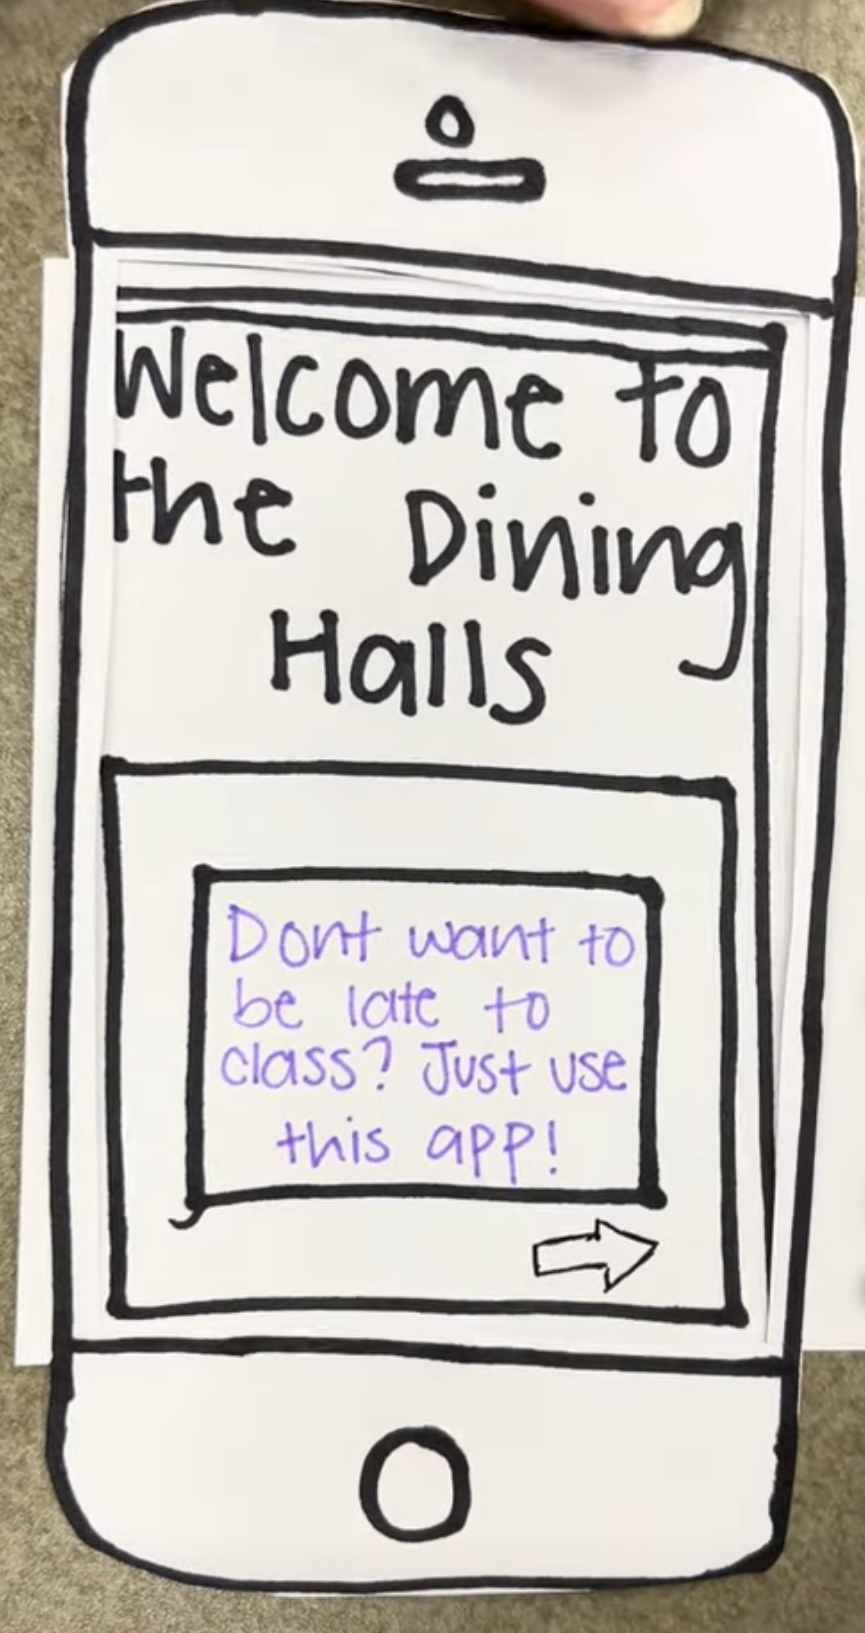 Welcome to
the Dining
Halls
Dont want to
be late to
class? Just use
this app!